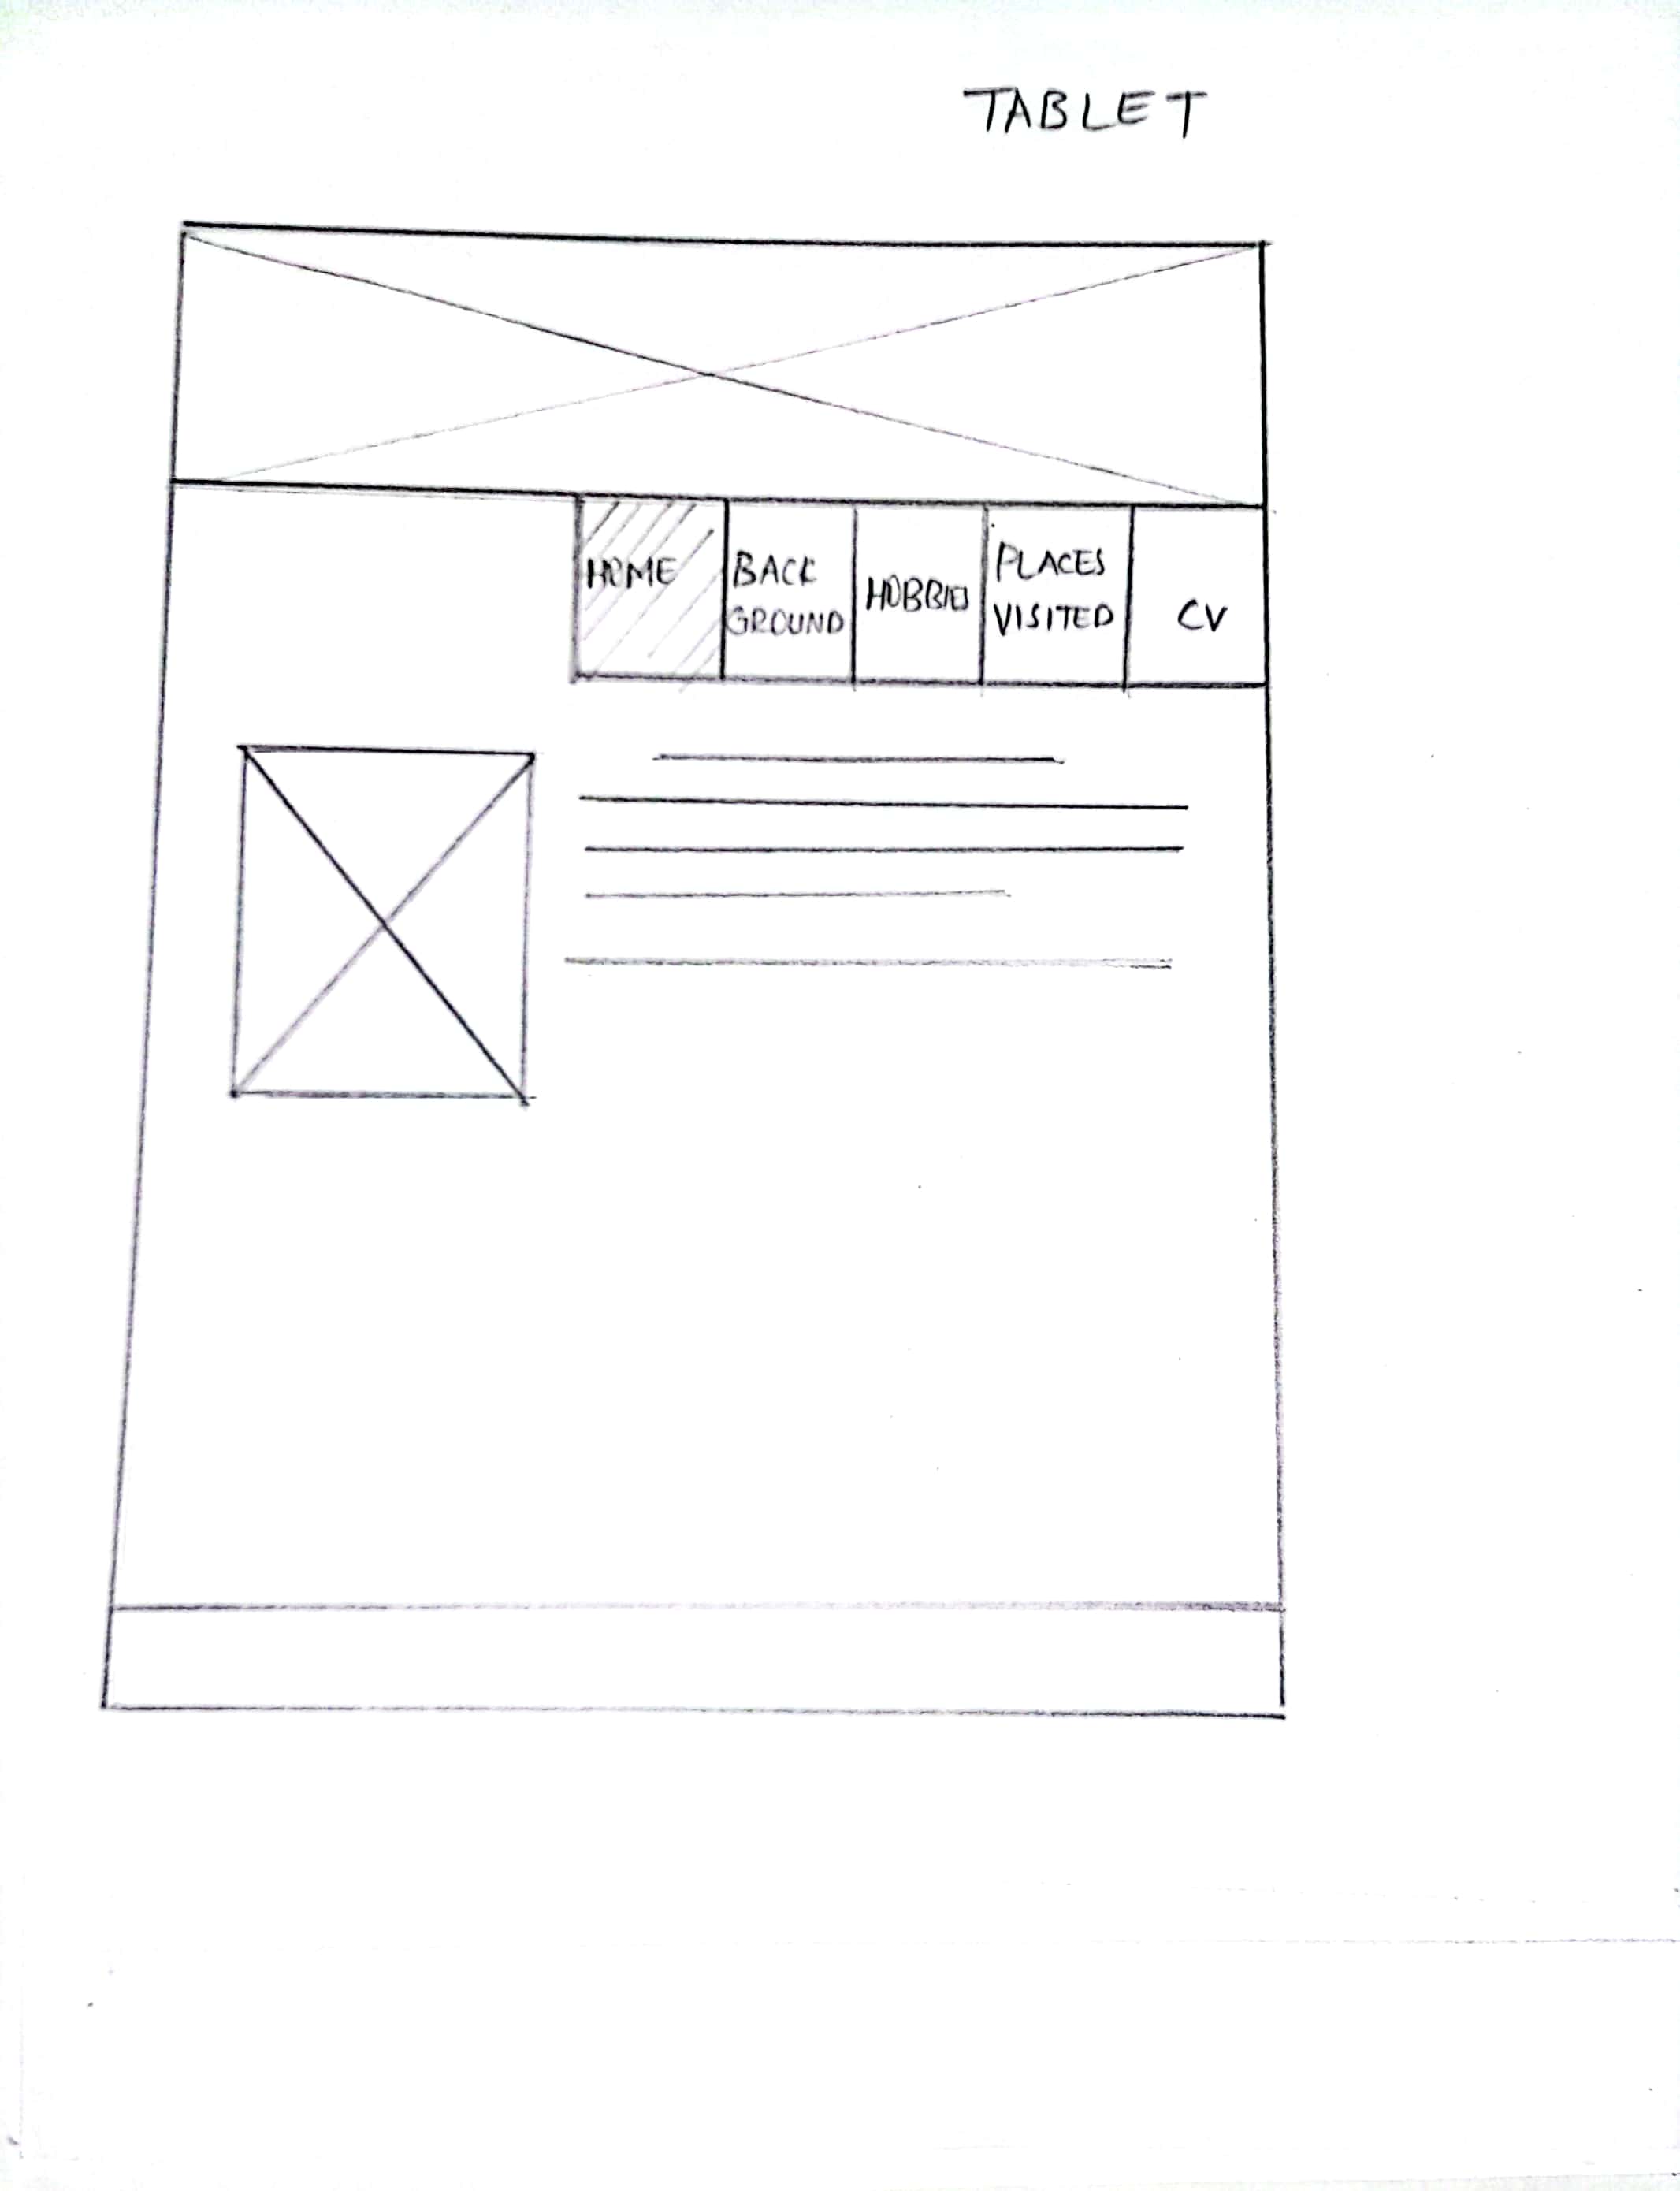 TABLET
HOME
BACK
GROUND
HOBBIES
PLACES
VISITED
CV